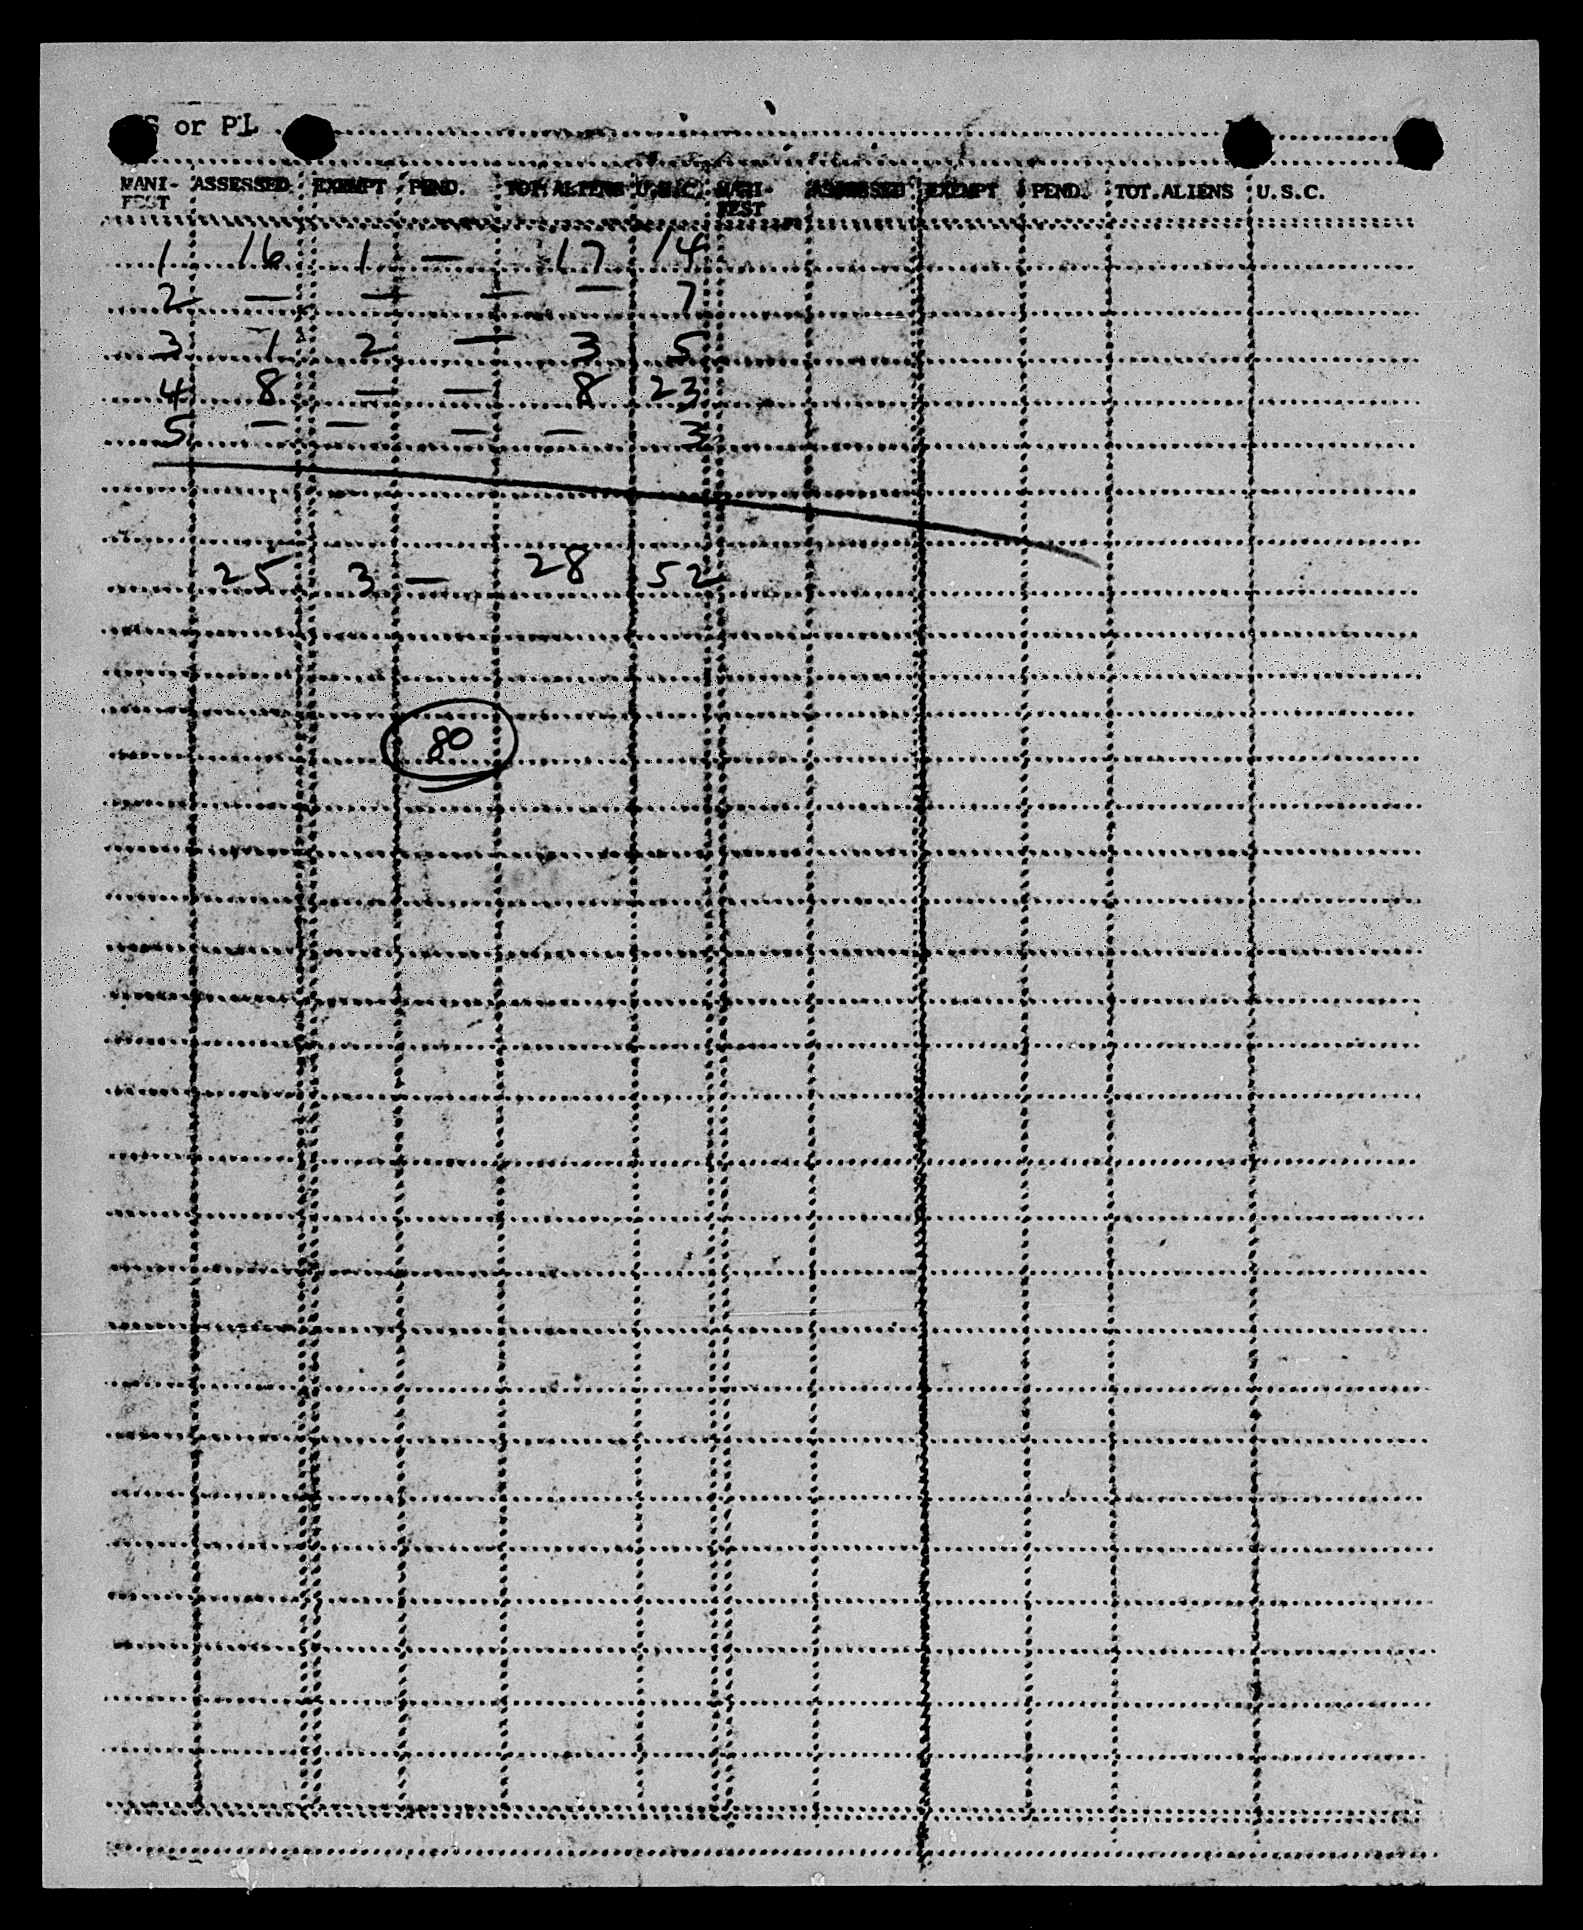 S or PL
MANI- ASSESSED EXEMPT PEND. TOT.ALIENS U.S.C. MANI- ASSESSED EXEMPT PEND. TOT.ALIENS U.S.C.
FEST FEST
1 16 1 — 17 14
2 — — — — 7
3 1 2 — 3 5
4 8 — — 8 23
5 — — — — 3
25 3 — 28 52
80